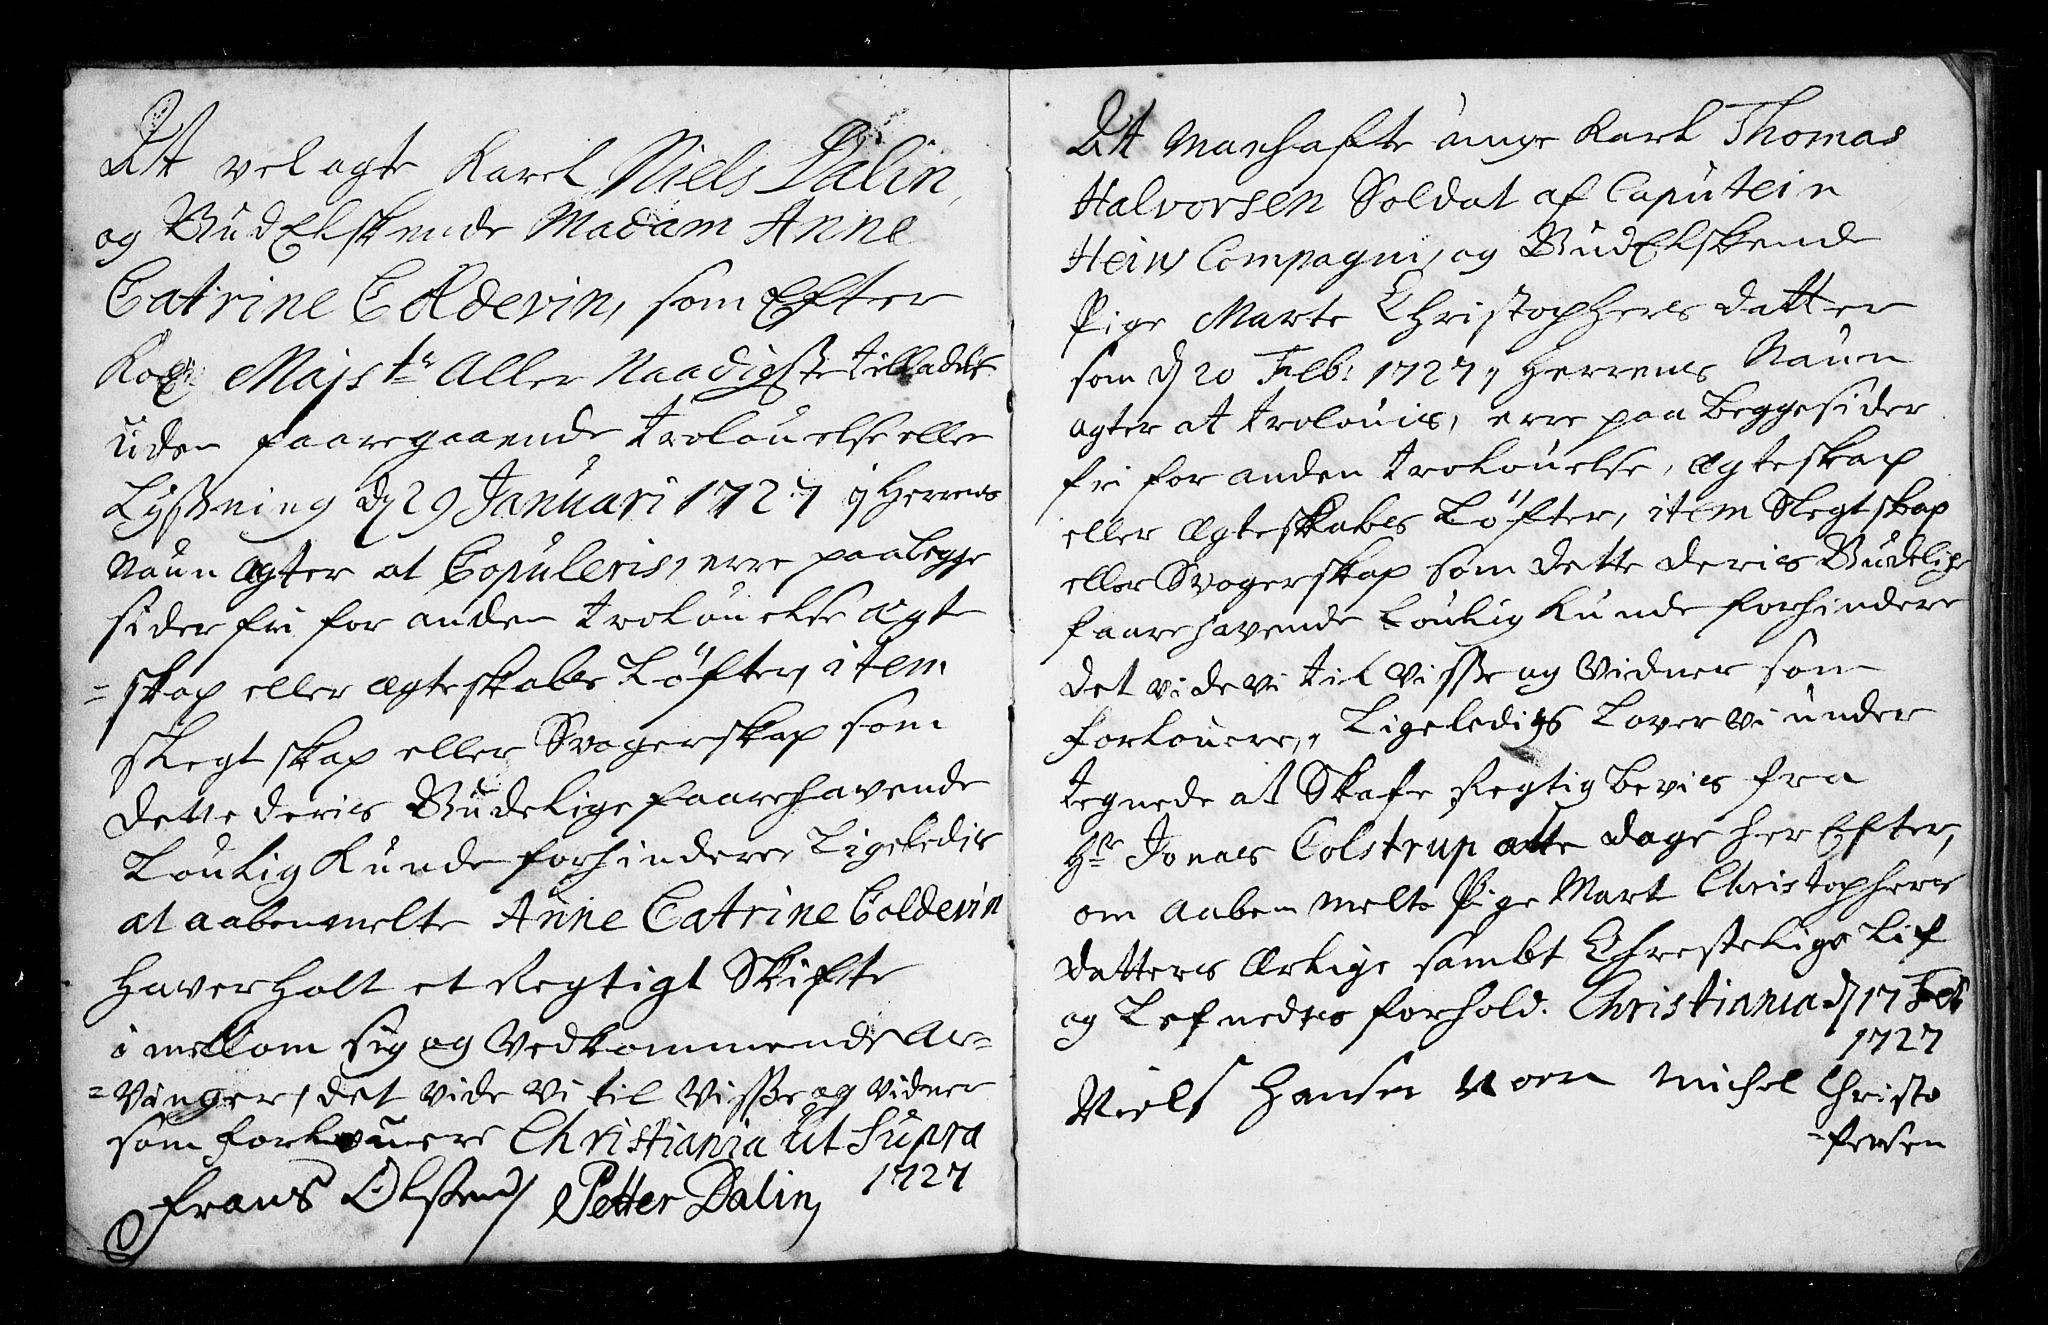 At velagte Karl Niels Dalin,
og Gudelskende Madam Anne
Catrine Coldevin, som Efter
Kog: Majs ts Aller Naadigste tilladels
uden faaregaaende trolouelse eller
Lysning d 29 Januari 1727 j Herrens
Naun agter at Copuleris, erre paa begge
sider fri for anden trolouelse agte
= skap eller agteskabs Löfter, item
slegtskap eller Svogerskap som
dette deris Gudelige faarehavende
Loulig kunde forhindere Ligeledis
at aabenmelte Anne Catrine Coldevin
haver holt et Regtigt Skifte
i mellom sig og Vedkommende Ar=
= vinger, det vide vi til Visse og vidner
som forlouere Christiania ut Supra
1727
Frans Olssen Petter Dalin
At Manhafte unge Karl Thomas
Halvorsen Soldat af Caputein
Heins Compagni, og Gudelskende
Pige Marte Christophers datter
som d 20 Feb: 1727 j Herrens Naun
agter at trolouis, erre paa Beggesider
fri for anden trolouelse, agteskap
eller agteskabs Löfter, item Slegtskap
eller Svogerskap som dette deris Gudelige
faarehavende Loulig kunde forhindere
det vide vi til Visse og Vidner som
forlouere, Ligeledis Lover vi under
tegnede at Skafe Regtig bevis fra
Hr Jonas Colstrup atte dage her Efter,
om aaben melte Pige Mart Christophers
datters ærlige sambt Chrestelige Lif
og Lefnedtes forhold. Christiania d 17 Feb
1727
Niels Hansen Michel Christo
-fersen